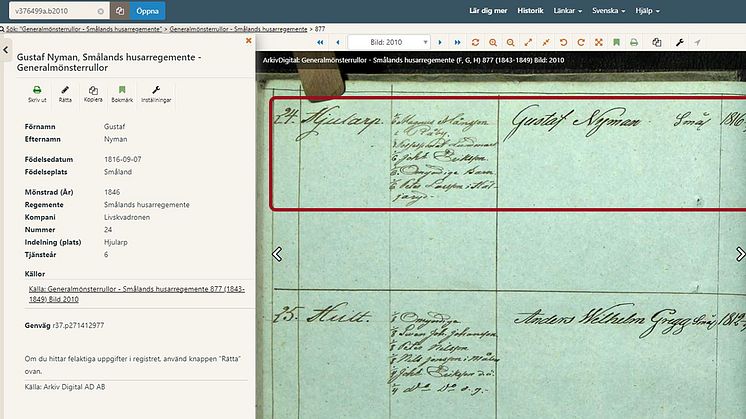 v376499a.b2010 Öppna Lär dig mer Historik Länkar Svenska Hjälp
Sök: "Generalmönsterrullor - Smålands husarregemente" > Generalmönsterrullor - Smålands husarregemente > 877
Gustaf Nyman, Smålands husarregemente - Generalmönsterrullor
Skriv ut Rätta Kopiera Bokmärk Inställningar
Förnamn Gustaf
Efternamn Nyman
Födelsedatum 1816-09-07
Födelseplats Småland
Mönstrad (År) 1846
Regemente Smålands husarregemente
Kompani Livskvadronen
Nummer 24
Indelning (plats) Hjularp
Tjänsteår 6
Källor
Källa: Generalmönsterrullor - Smålands husarregemente 877 (1843-
1849) Bild 2010
Genväg r37.p271412977
Om du hittar felaktiga uppgifter i registret, använd knappen "Rätta"
ovan.
Källa: Arkiv Digital AD AB
Bild: 2010
ArkivDigital: Generalmönsterrullor - Smålands husarregemente (F, G, H) 877 (1843-1849) Bild: 2010
24. Hjularp. Gustaf Nyman. Smål 1816
Johk Eriksson
Omyndige Barn
25. Hult. Omyndige Anders Wilhelm Gregg Smål 1812
Swen Joh. Johansson
Peter Nilsson
Johk Eriksson